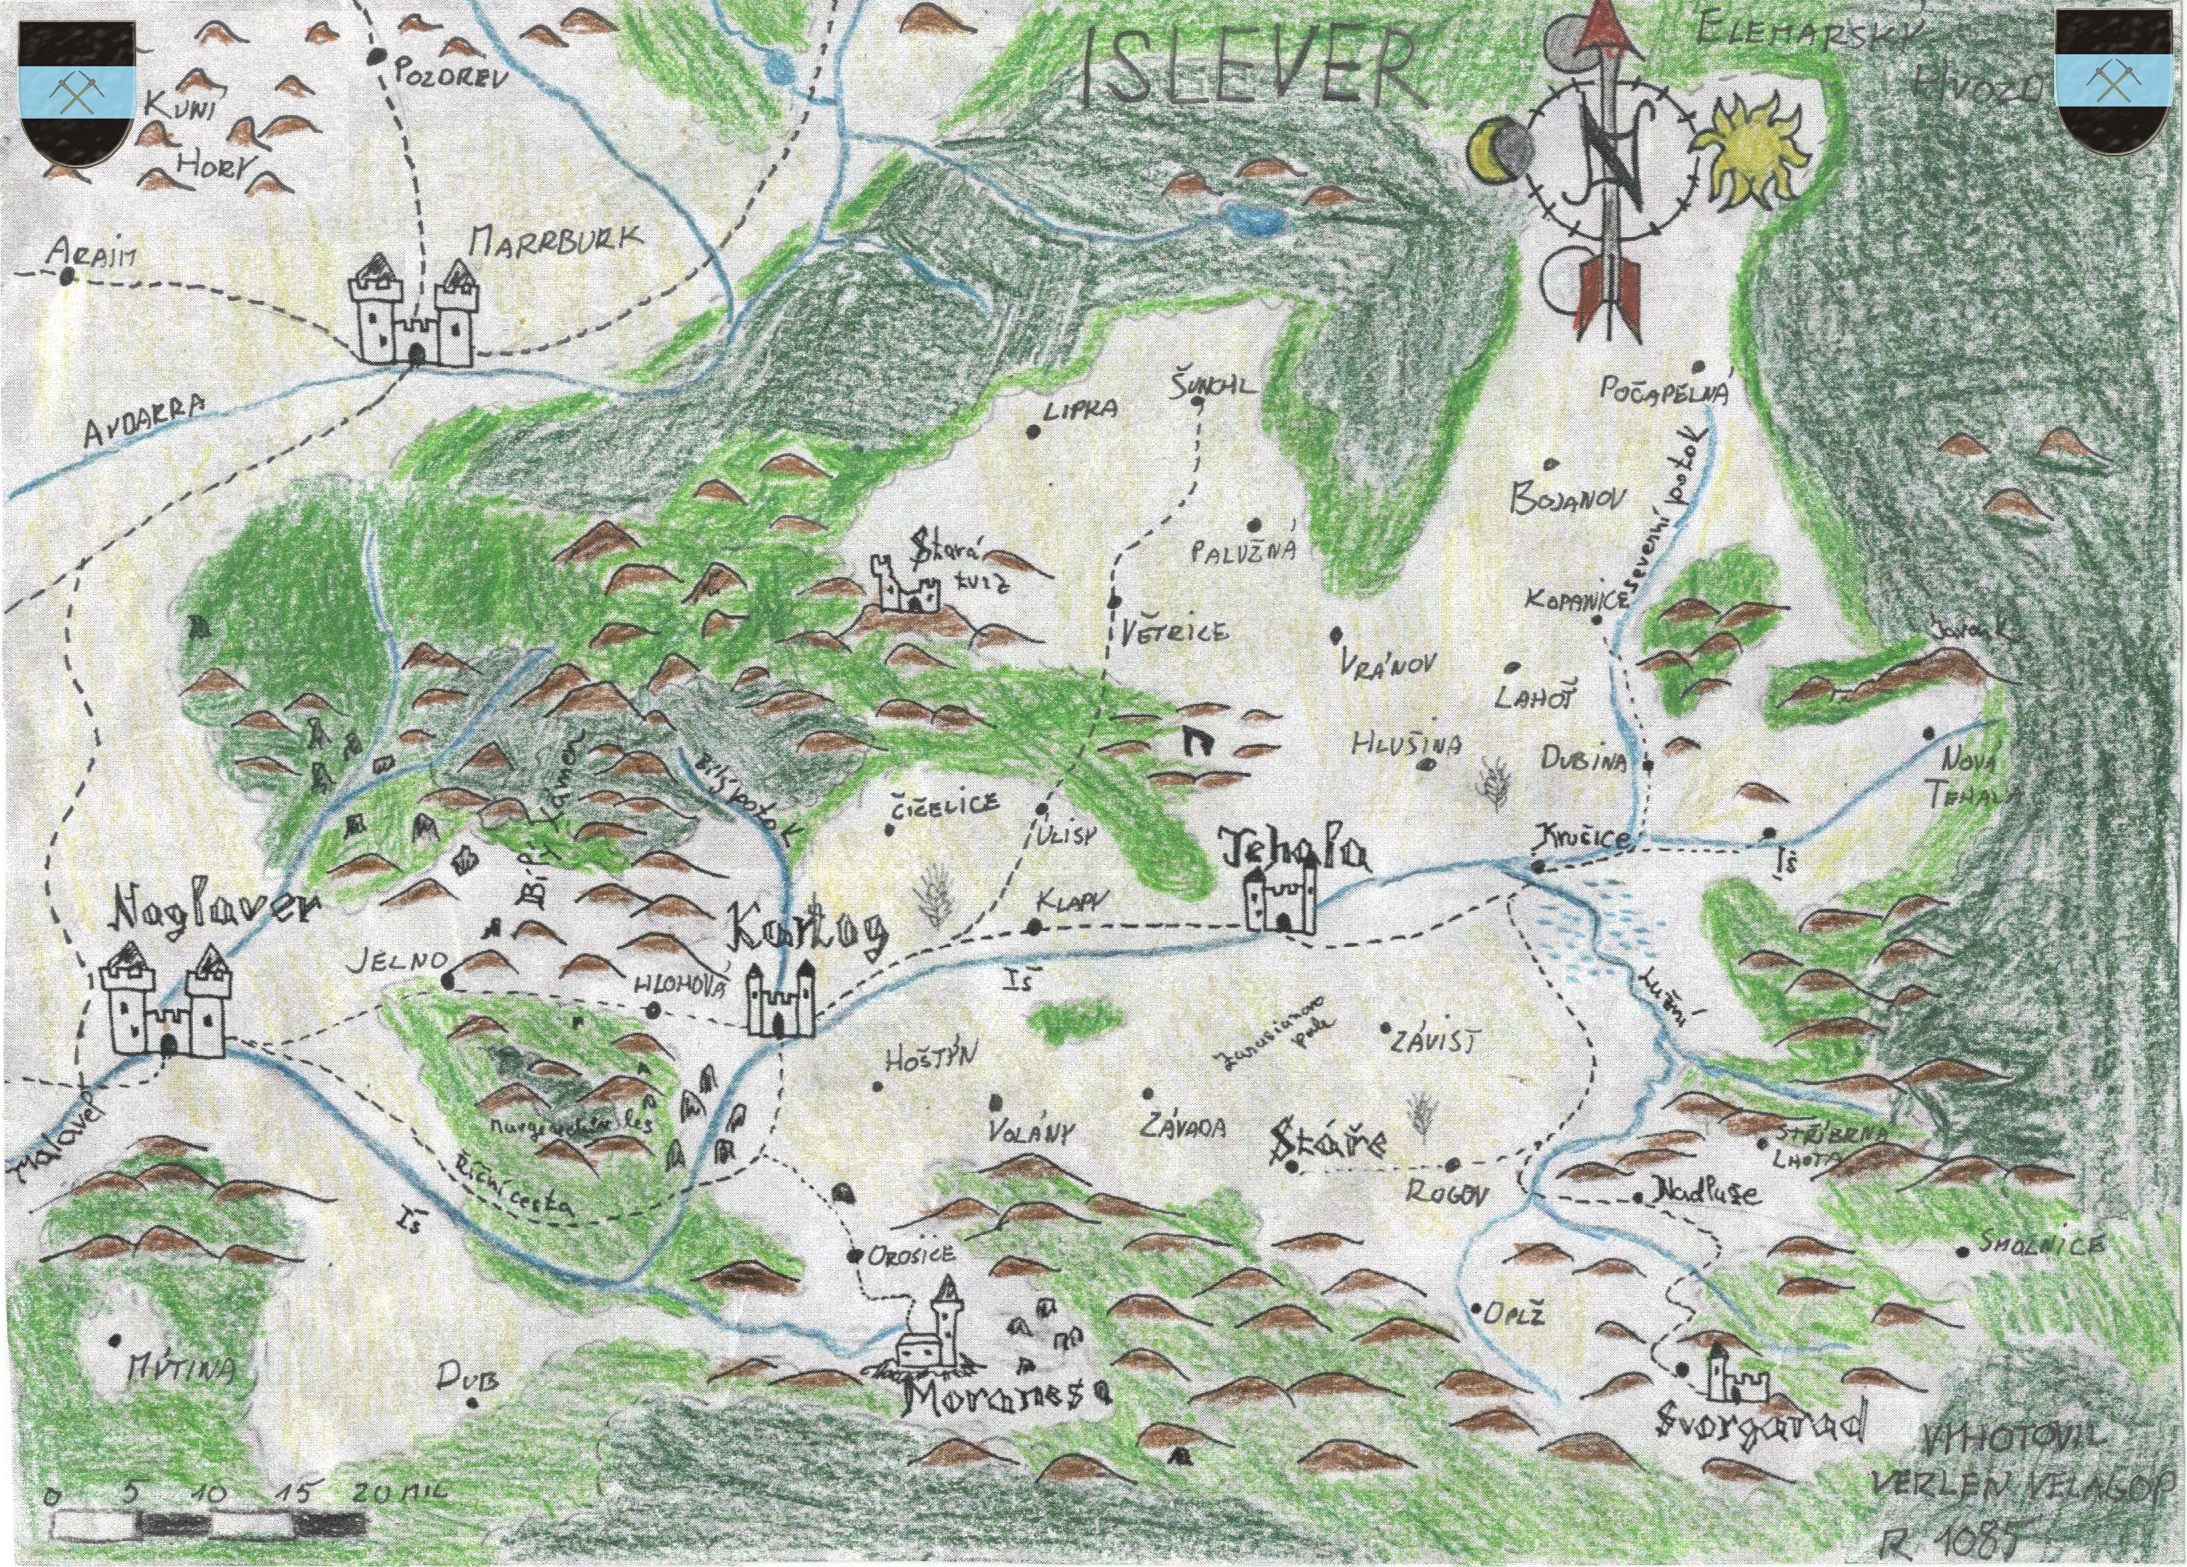 ISLEVER
ELEMARSKÝ
HVOZD
POZDREV
KUNÍ
HORY
ARAIM
MARRBURK
N
AVDARRA
LIPRA
ŠUNCHL
POČAPELNÁ
BOJANOV
Severní potok
PALUŽNÁ
Stará
tvrz
KOPANICE
VĚTRICE
VRÁNOV
LAHOŤ
Javořík
HLUŠINA
DUBINA
NOVÁ
TEHALA
Bílý potok
Bílý kámen
ČIČELICE
ÚLISY
Tehala
Kručice
Iš
Naglaver
JELNO
HLOHOVÁ
Kartog
KLAPY
Iš
Lužní
HOŠTÝN
pole
ZÁVIST
VOLÁNY
ZÁVADA
Stáře
ROGOV
STŘÍBRNÁ
LHOTA
Nadluže
les
Malaver
Říční cesta
Iš
OROSICE
SMOLNICE
OPLŽ
MÝTINA
DUB
Moranesa
Svorgarad
VYHOTOVIL
VERLEN VELAGOP
R. 1085
0 5 10 15 20 MIL